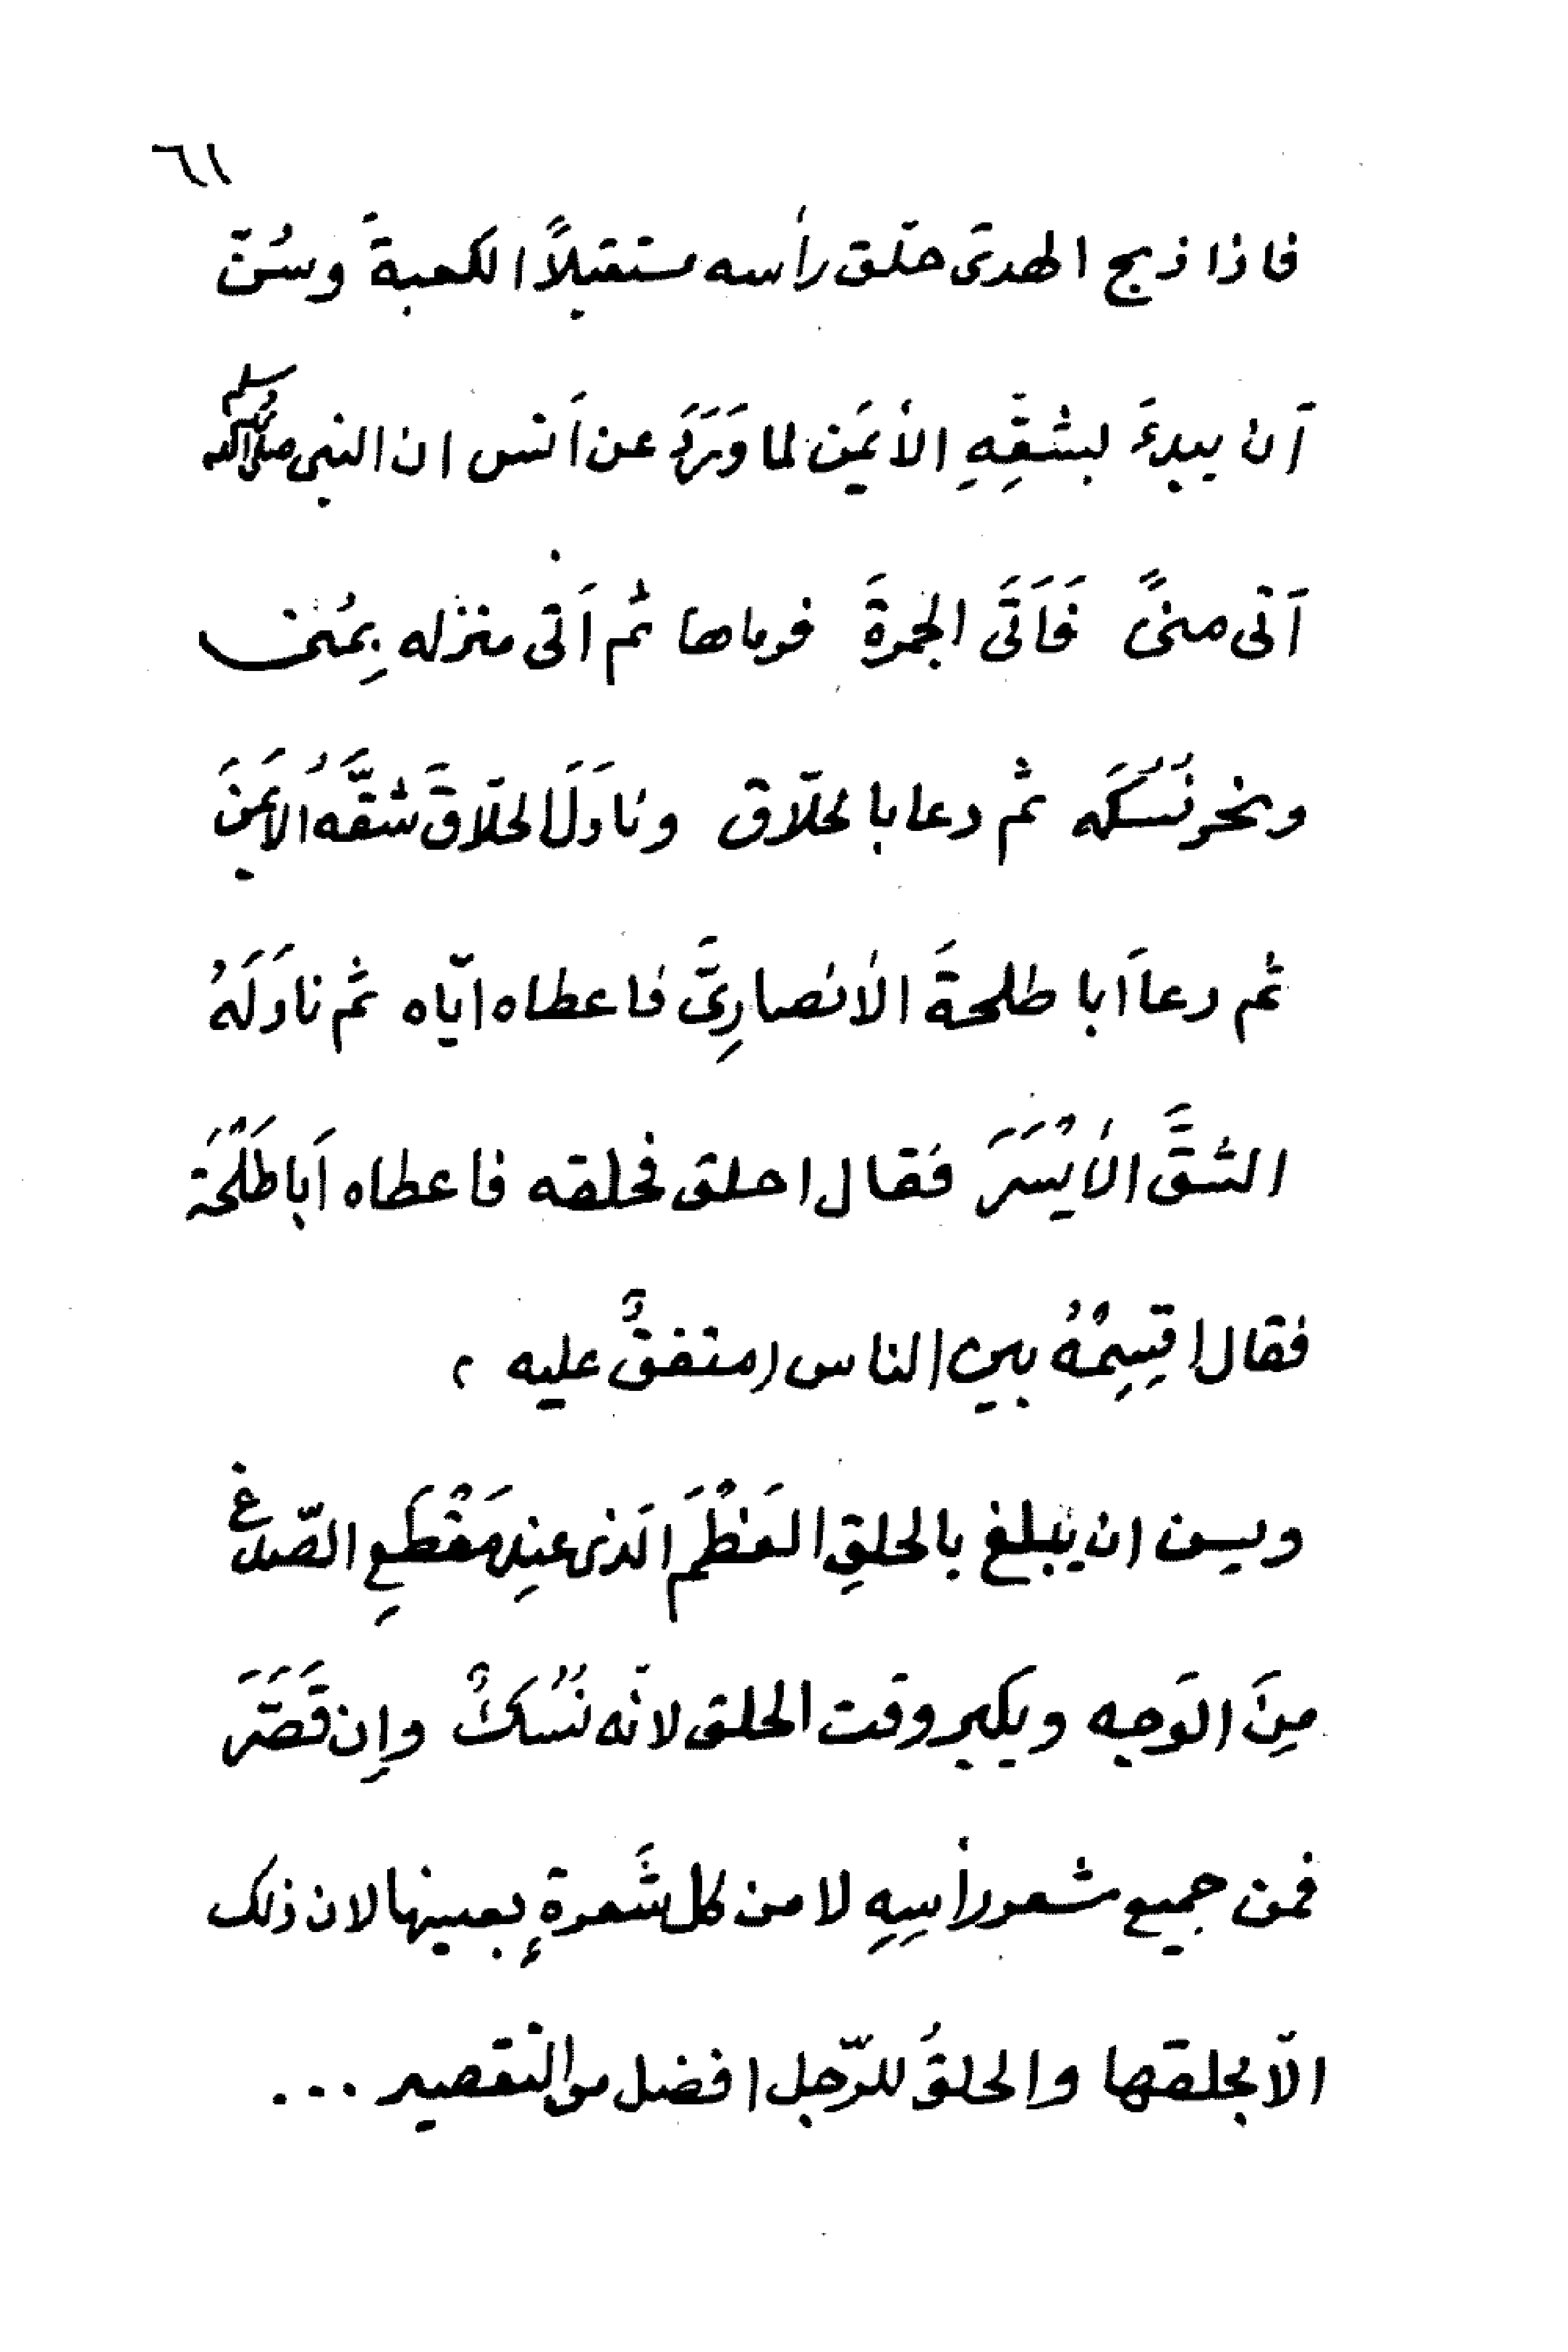 ٦١
فاذا ذبح الهدىَ حلّق رأسه مستقبلاً الكعبةَ وسُنّ
اَن يبدءَ بشقِّهِ الأيمَن لما وَرَدَ عن اَنس ان النبى صلى الله عليه وسلم
اَتى منىً فَاَتَى الجمرةَ فرماها ثم اَتى منزله بِمُنى
ونحر نُسُكَه ثم دعا بالحلّاق ونَاوَلَ الحلّاقَ شقَّهُ الأيمَنَ
ثم دعا اَبا طلحةَ الأنصارِىَّ فاعطاه ايّاه ثم ناوَلَهُ
الشقَّ الأيْسَرَ فقال احلق فحلقه فاعطاه اَبا طَلْحَةَ
فقال اقسِمْهُ بين الناس (متفقٌ عليه )
ويسن ان يبلغ بالحلقِ العَظْمَ الّذى عندِ مَقْطَعِ الصّدغ
مِنَ الوَجه ويكبر وقت الحلق لانّه نُسُكٌ وإن قَصَّرَ
فمن جميع شعر رأسِهِ لا من كل شَعرةٍ بعينها لان ذلك
الّا بحلقها والحلقُ للرّجل افضل من التقصير ...